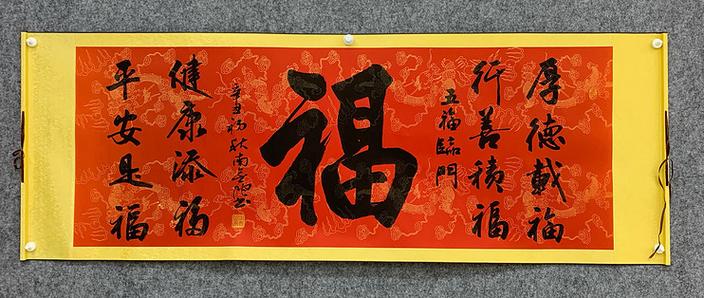 厚德載福
行善積福
五福臨門
福
辛丑初秋南無陀書
健康添福
平安是福